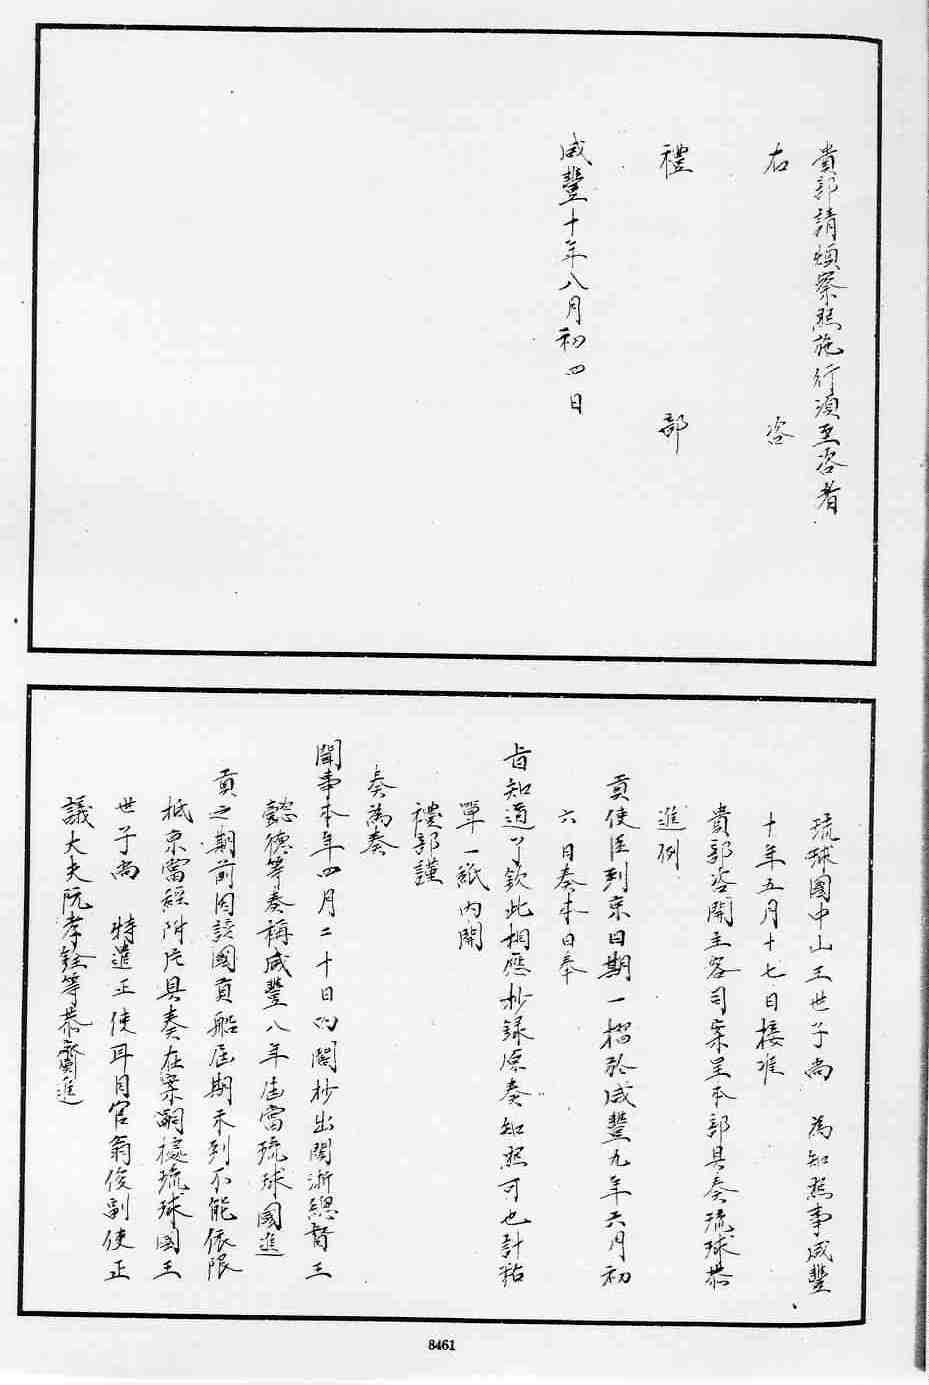 貴部請煩察照施行須至咨者
右咨
禮部
咸豐十年八月初四日
琉球國中山王世子尚　為知照事咸豐
十年五月十七日接准
貴部咨開主客司案呈本部具奏琉球恭
進例
貢使臣到京日期一摺於咸豐九年六月初
六日奏本日奉
旨知道了欽此相應抄録原奏知照可也計粘
單一紙內開
禮部謹
奏為奏
聞事本年四月二十日內閣抄出閩浙總督王
懿德等奏稱咸豐八年届當琉球國進
貢之期前因該國貢船届期未到不能依限
抵京當經附片具奏在案嗣據琉球國王
世子尚　特遣正使耳目官翁俊副使正
議大夫阮孝銓等恭齎進
8461